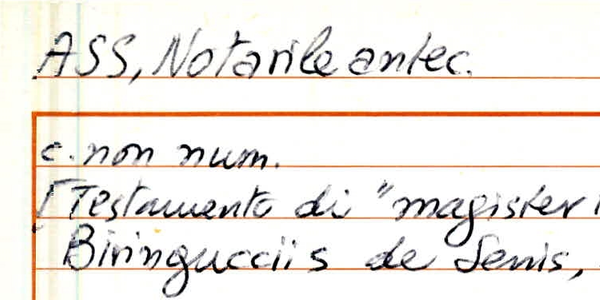 ASS, Notarile antec.
c. non num.
[Testamento di "magister
Biringucciis de Senis,